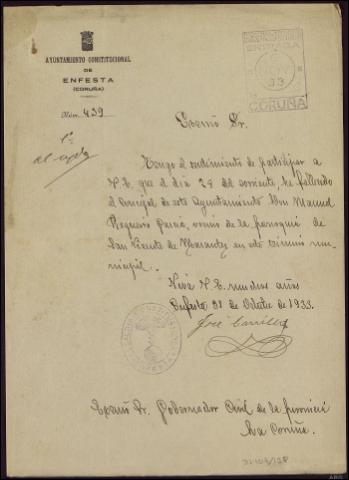 AYUNTAMIENTO CONSTITUCIONAL
DE
ENFESTA
(CORUÑA)
Núm. 439
ENTRADA
33
CORUÑA
Excmo Sr.
Tengo el sentimiento de participar a
V.E. que el dia 29 del corriente, ha fallecido
el Concejal de este Ayuntamiento Don Manuel
vecino de la parroquia de
San Vicente de Marantes en este término mu-
nicipal.
Viva V.E. muchos años
Enfesta 31 de Octubre de 1933.
José Carrillo
Excmo Sr. Gobernador Civil de la provincia
La Coruña.